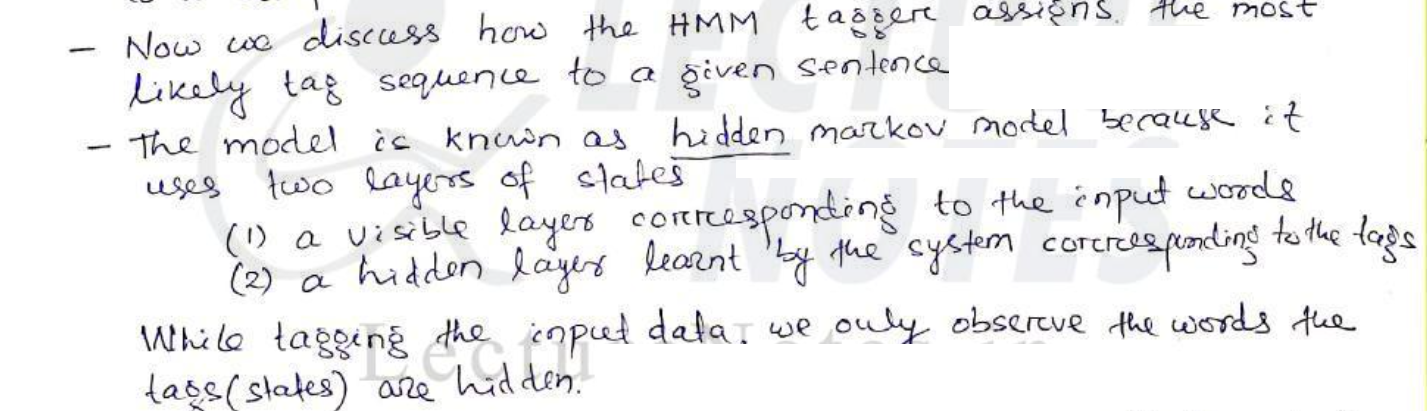 - Now we discuss how the HMM tagger assigns. the most
likely tag sequence to a given sentence
- The model is known as hidden markov model because it
uses two layers of states
(1) a visible layer corresponding to the input words
(2) a hidden layer learnt by the system corresponding to the tags
While tagging the input data, we only observe the words the
tags (states) are hidden.